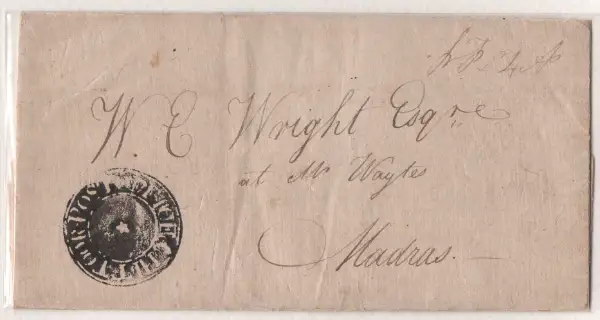 W. C Wright Esqre
at Mr Waytes
Madras.
CHITTOOR POST OFFICE